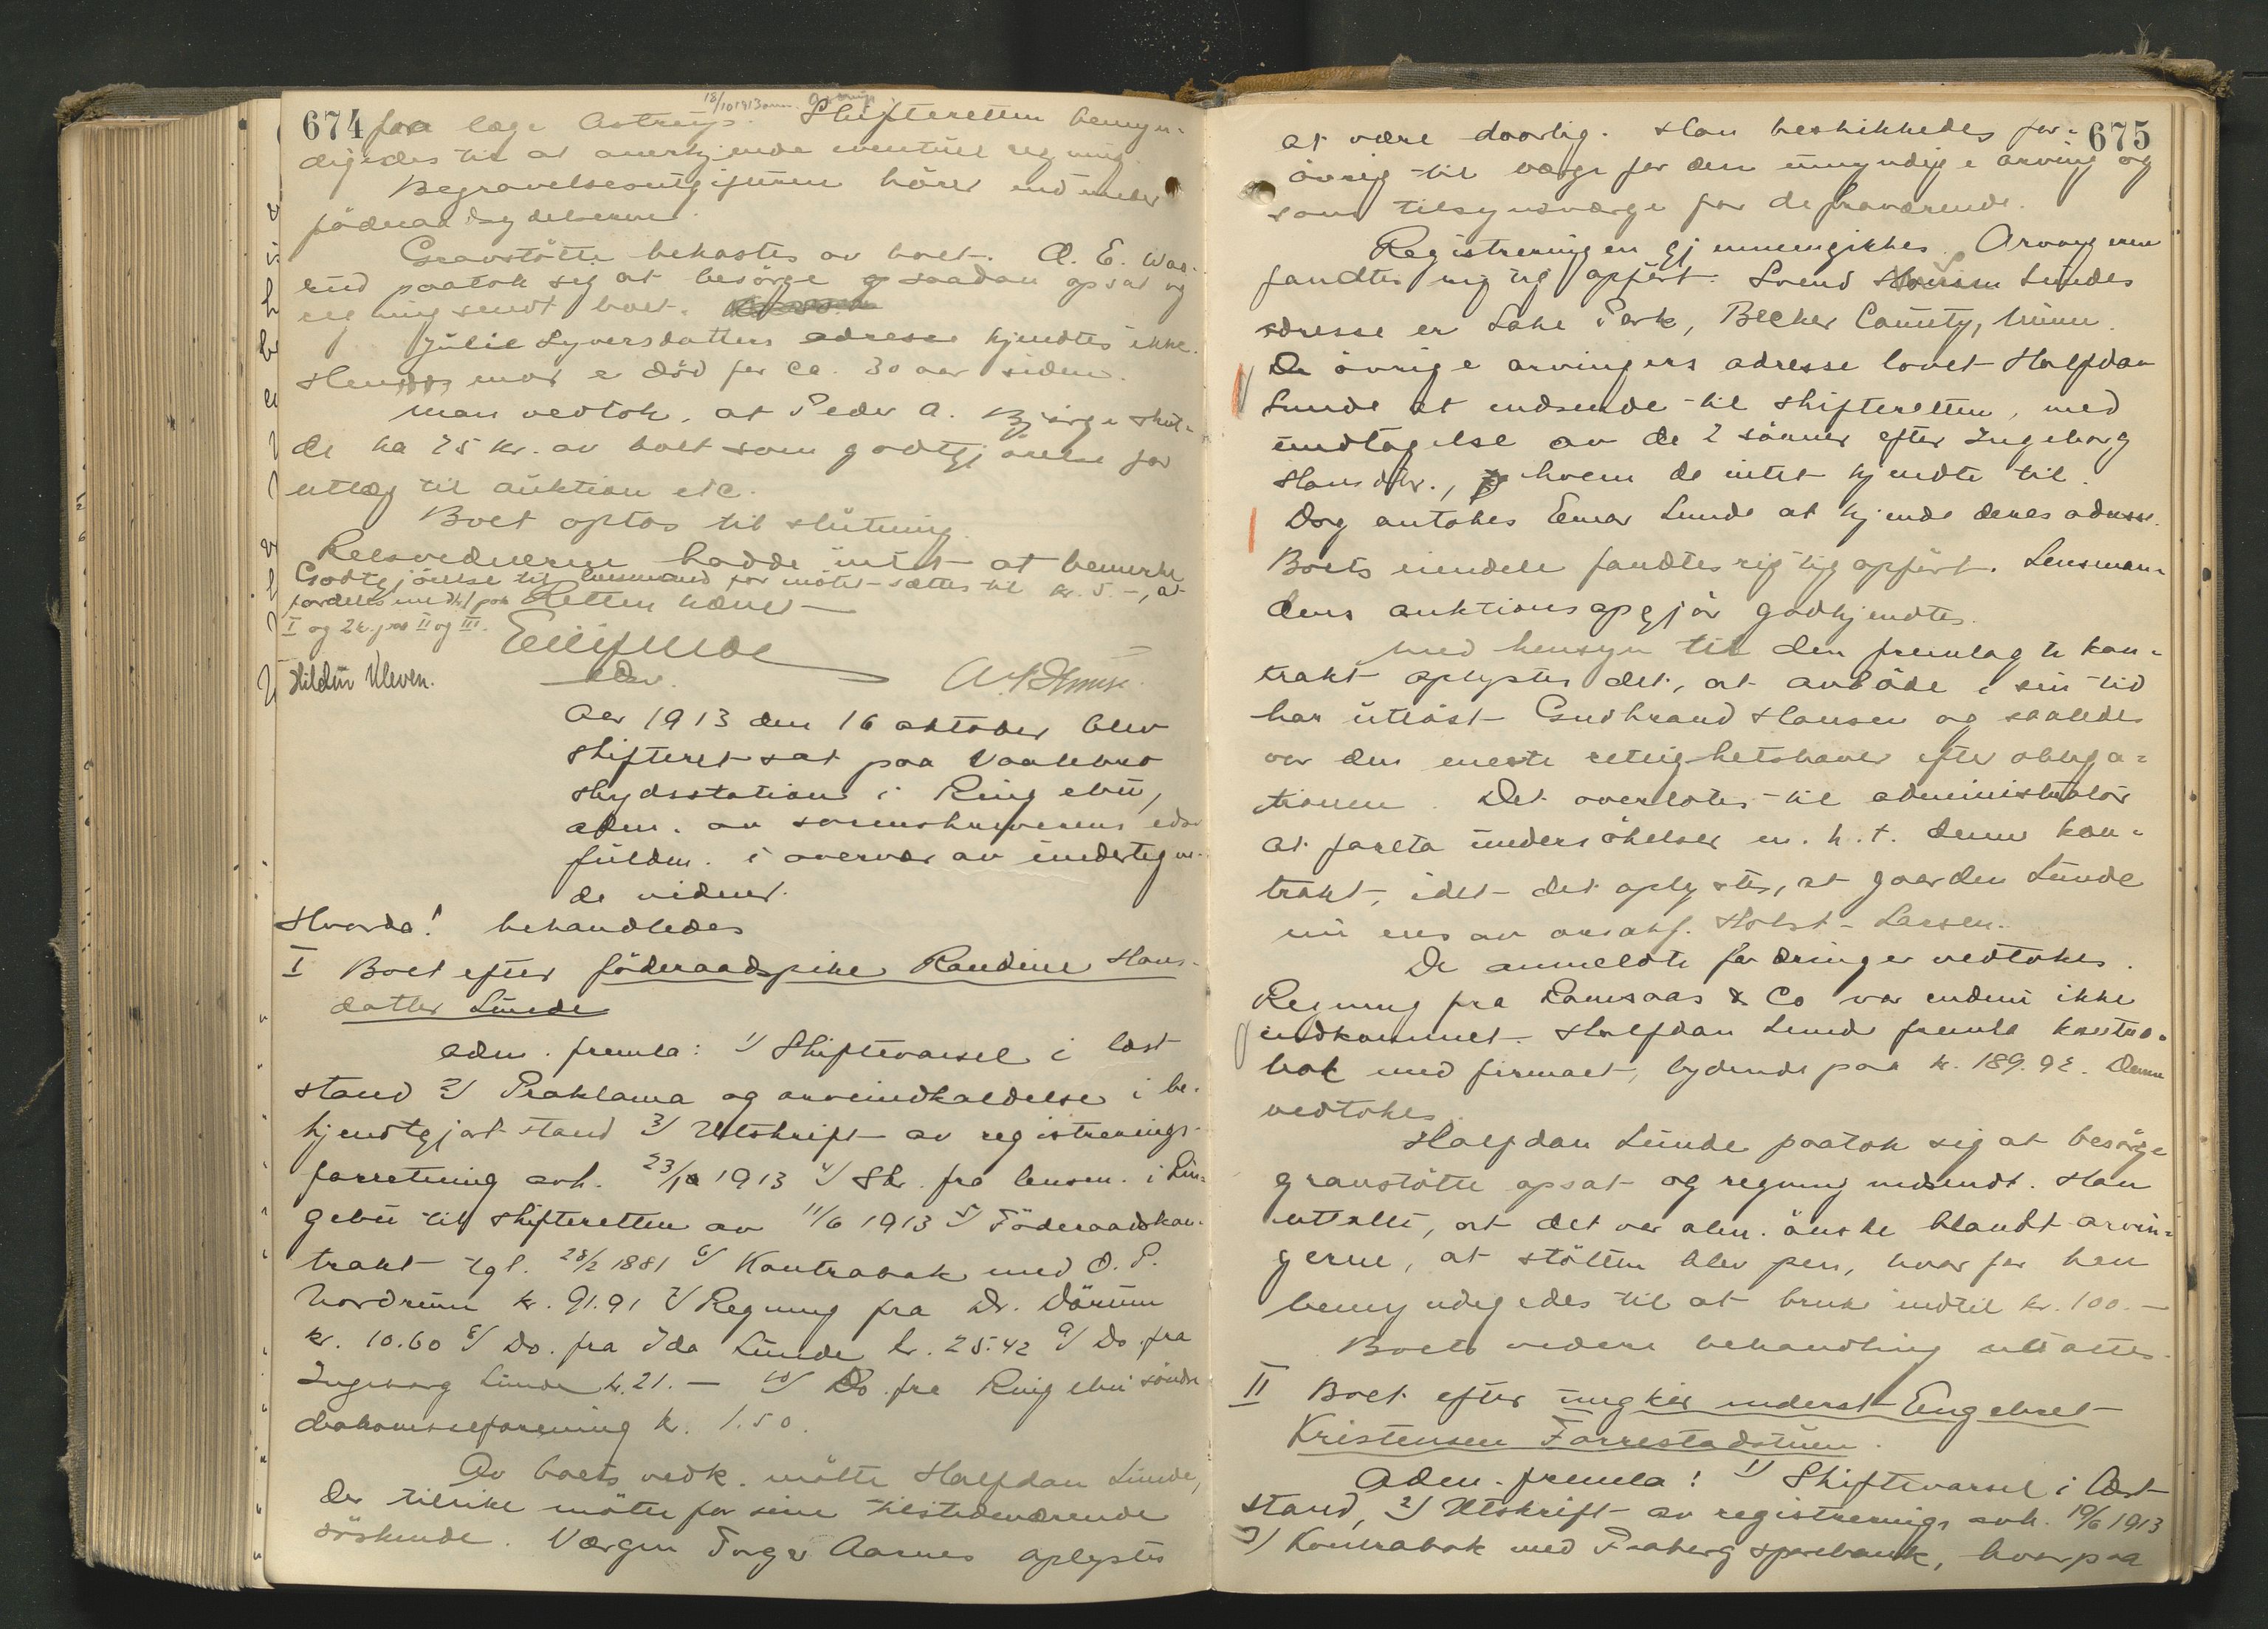 674 fra læge Astrup. Skifteretten bemyn-
18/10 1913 anm.
digedes til at anerkjende eventuel regning.
Begravelsesutgifterne hörer ind under
föderaadsydelserne.
Gravstötte bekostes av boet. O. E. Waa-
rud paatok sig at besörge saadan opsat og
regning sendt boet.
Julie Syversdatters adresse kjendtes ikke.
Hennes mor er död for ca. 30 aar siden.
Man vedtok, at Peder A. Bjørge skul-
de ha 75 kr. av boet som godtgjörelse for
utlæg til auktion etc.
Boet optas til slutning.
Retsvidnerne hadde intet at bemerke
Godtgjörelse til lensmand for mötet sættes til kr. 5.-, at
fordeles med kr 1 paa Retten hævet
I og 2 kr. paa II og III.
Hildur Kleven.
edsv.
Aar 1913 den 16 oktober blev
skifteret sat paa Vaalebro
skydsstation i Ringebu,
adm. av sorenskriverens edsv
fuldm. i overvær av undertegne-
de vidner.
Hvorda! behandledes
I Boet efter föderaadspike Randine Hans-
datter Lunde
Adm. fremla: 1/ Skiftevarsel i læst
stand 2/ Proklama og arveindkaldelse i be-
kjendtgjort stand 3/ Utskrift av registrerings-
forretning avh. 23/10 1913 4/ Skr. fra lensm. i Rin-
gebu til skifteretten av 11/6 1913 5/ Föderaadskon-
trakt tgl. 28/2 1881 6/ Kontrabok med O. P.
Nordrum kr. 91.91 7/ Regning fra Dr. Dörum
kr. 10.60 8/ Do. fra Ida Lunde kr. 25.42 9/ Do. fra
Ingeborg Lunde kr. 21.— 10/ Do. fra Ringebu söndre
avholdsforening kr. 1.50.
Av boets vedk. mötte Halfdan Lunde,
der tillike mötte for sine tilstedeværende
söskende. Værgen Torger Aarnes oplystes
675
at være daarlig. Han beskikkedes for-
övrig til værge for den umyndige arving og
som tilsynsværge for de fraværende.
Registreringen gjennemgikkes. Arvingerne
fandtes rigtig opfört. Svend Hansen Lundes
adresse er Lake Park, Becker County, Minn.
De övrige arvingers adresse lovet Halfdan
Lunde at indsende til skifteretten, med
undtagelse av de 2 sönner efter Ingeborg
Hansdtr., hvem de intet kjendte til.
Dog antokes Einar Lunde at kjende deres adresse.
Boets eiendele fandtes rigtig opfört. Lensman-
dens auktionsopgjör godkjendtes.
Med hensyn til den fremlagte kon-
trakt oplystes det, at avdöde i sin tid
har utlöst Gudbrand Hansen og saaledes
var den eneste rettighetshaver efter obliga-
tionen. Det overlotes til administrator
at foreta undersökelser m. h. t. denne kon-
trakt, idet det oplystes, at gaarden Lunde
nu eies av oversakf. Holst-Larsen.
De anmeldte fordringer vedtokes.
Regning fra Ramsaas & Co var endnu ikke
indkommet. Halfdan Lunde fremla kontra-
bok med firmaet, lydende paa kr. 189.92. Denne
vedtokes.
Halfdan Lunde paatok sig at besörge
gravstötte opsat og regning indsendt. Han
uttalte, at det var alm. önske blandt arvin-
gerne, at stötten blev pen, hvorfor han
bemyndigedes til at bruke indtil kr. 100.—
Boets videre behandling utsattes.
II Boet efter ungkar inderst Engebret
Kristensen Forrestadstuen.
Adm. fremla: 1/ Skiftevarsel i læst
stand, 2/ Utskrift av registrering avh. 19/6 1913
3/ Kontrabok med Faaberg sparebank, hvorpaa